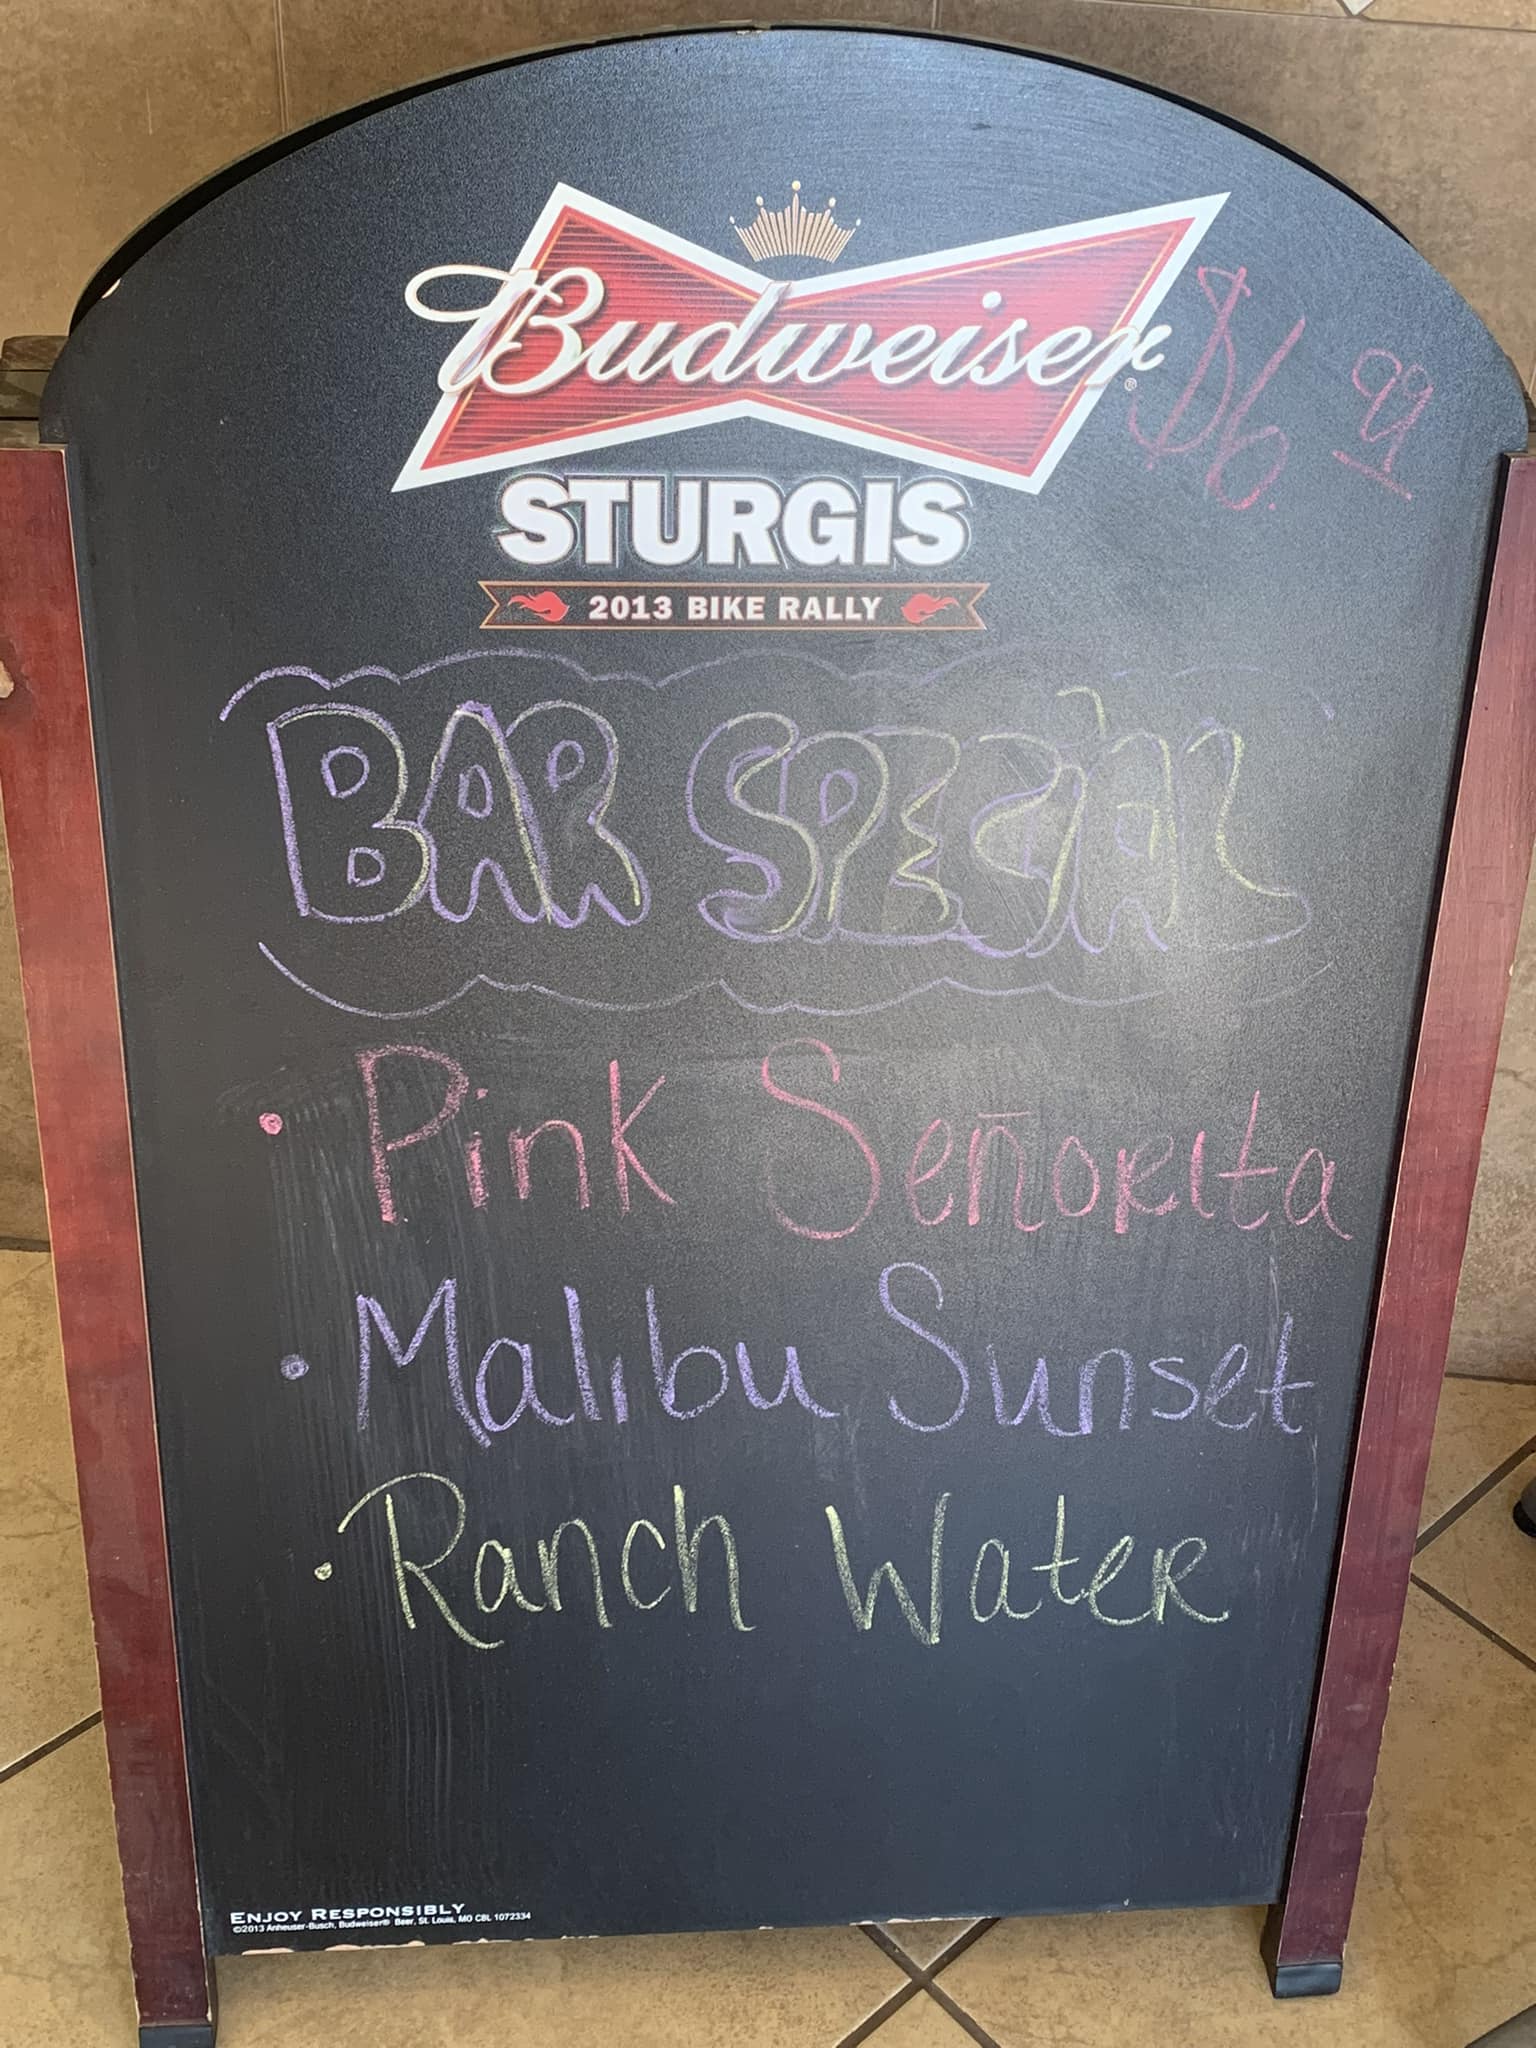 Budweiser®
$6.99
STURGIS
2013 BIKE RALLY
BAR SPECIAL
• Pink Señorita
• Malibu Sunset
• Ranch Water
ENJOY RESPONSIBLY
©2013 Anheuser-Busch, Budweiser® Beer, St. Louis, MO CBL 1072334